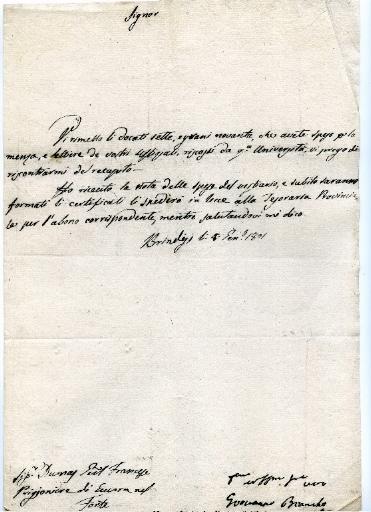 Signor
Vi rimetto li docati sette, e grani novanta, che avete speso per la
menza, e lettere de vostri Uffiziali, riscossi da q.a Università, vi prego di
riscontrarmi del recapito.
Ho ricevuto la nota delle spese del vestiario, e subito saranno
formati li certificati li spedirò in Lecce alla Tesoreria Provincia
le per l'abono corrispondente, mentre salutandovi mi dico
Brindisi li 8 1801
Sig.r Dumas Francese
Prigioniere di Guerra nel
Forte
Giovanni Bianchi